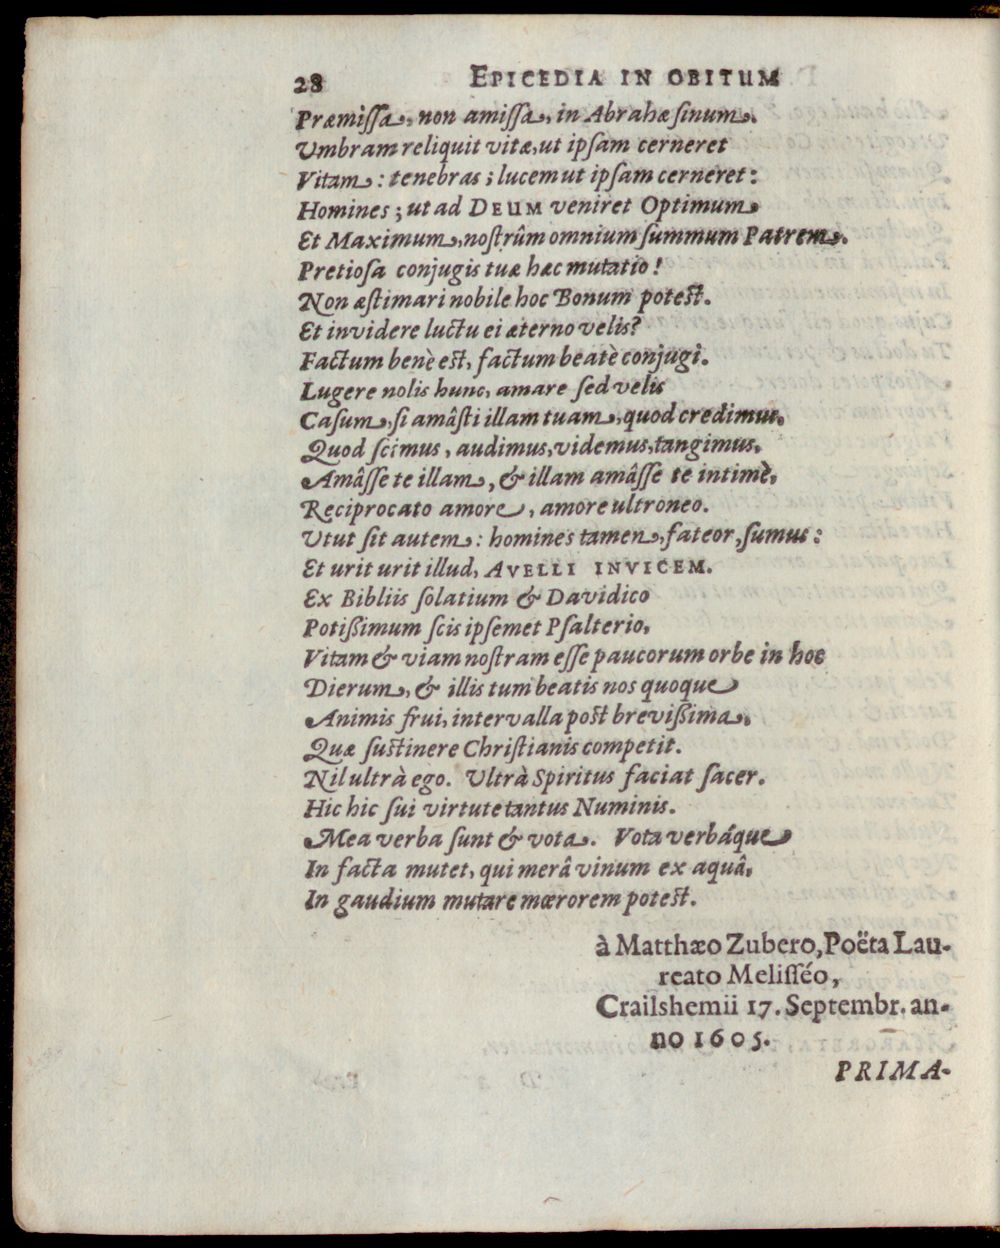 28 EPICEDIA IN OBITUM
Præmissa, non amissa, in Abrahæ sinum.
Umbram reliquit vitæ, ut ipsam cerneret
Vitam: tenebras; lucem ut ipsam cerneret:
Homines; ut ad DEUM veniret Optimum
Et Maximum, nostrûm omnium summum Patrem.
Pretiosa conjugis tuæ hæc mutatio!
Non æstimari nobile hoc Bonum potest.
Et invidere luctu ei æterno velis?
Factum benè est, factum beatè conjugi.
Lugere nolis hunc, amare sed velis
Casum, si amâsti illam tuam, quod credimus,
Quod scimus, audimus, videmus, tangimus,
Amâsse te illam, & illam amâsse te intimè,
Reciprocato amore, amore ultroneo.
Utut sit autem: homines tamen, fateor, sumus:
Et urit urit illud, AVELLI INVICEM.
Ex Bibliis solatium & Davidico
Potißimum scis ipsemet Psalterio,
Vitam & viam nostram esse paucorum orbe in hoc
Dierum, & illis tum beatis nos quoque
Animis frui, intervalla post brevißima,
Quæ sustinere Christianis competit.
Nil ultrà ego. Ultrà Spiritus faciat sacer.
Hic hic sui virtute tantus Numinis.
Mea verba sunt & vota. Vota verbáque
In facta mutet, qui merâ vinum ex aquâ,
In gaudium mutare mœrorem potest.
à Matthæo Zubero, Poëta Lau-
reato Melisséo,
Crailshemii 17. Septembr. an-
no 1605.
PRIMA-